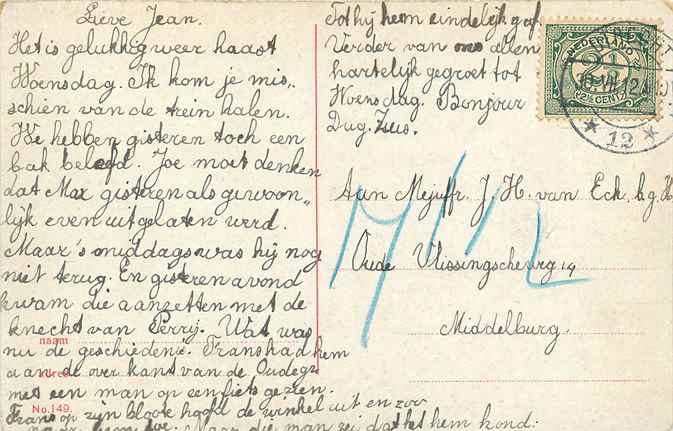 Lieve Jean.
Het is gelukkig weer haast
Woensdag. Ik kom je mis„
schien van de trein halen.
We hebben gisteren toch een
bak beleefd. Joe moet denken
dat Max gisteren als gewoon„
lijk even uitgelaten werd.
Maar 's middags was hij nog
niet terug. En gisteren avond
kwam die aanzetten met de
knecht van Perrij. Wat was
nu de geschiedenis. Frans had hem
aan de over kant van de Oudegr
met een man op een fiets gezien.
Frans op zijn bloote hoofd de winkel uit en zoo
hem toe. Maar die man zei dat het hem kond:
Tot hij hem eindelijk gaf
Verder van ons allen
hartelijk gegroet tot
Woensdag. Bonjour
Dag. Zus.
NEDERLAND
2½
2½ CENT
12
Aan Mejuffr. J. H. van Eck, b.g. H
Oude Vlissingscheweg 14
Middelburg.
naam
No. 149.